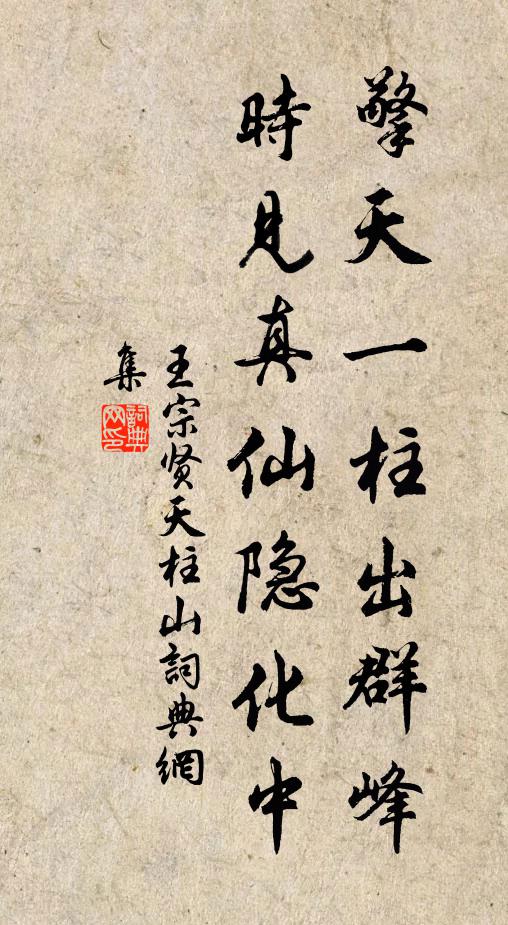 擎天一柱出群峰
時見真仙隐化中
王宗贤天柱山詞典網
集
詞典网印